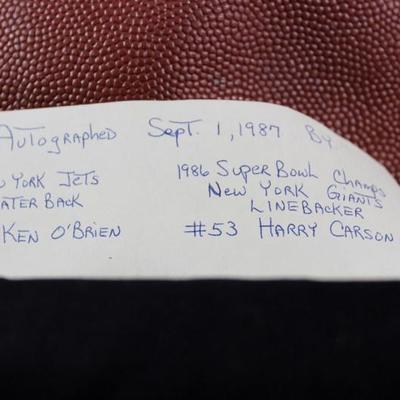 Autographed Sept. 1, 1987 By
York Jets
Back
Ken O'Brien
1986 Super Bowl Champs
New York Giants
Linebacker
#53 Harry Carson